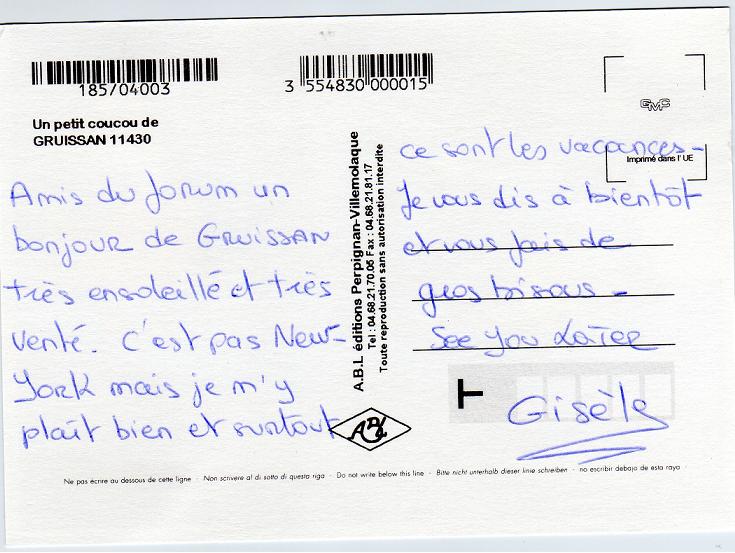 185704003
3 554830 000015
GMC
Imprimé dans l'UE
Un petit coucou de
GRUISSAN 11430
Amis du forum un
bonjour de GRUISSAN
très ensoleillé et très
venté. C'est pas New-
York mais je m'y
plaît bien et surtout
A.B.L éditions Perpignan-Villemolaque
Tel : 04.68.21.70.05 Fax : 04.68.21.81.17
Toute reproduction sans autorisation interdite
ABL
ce sont les vacances-
Je vous dis à bientôt
et vous fais de
gros bisous -
See you LATER
Gisèle
Ne pas écrire au dessous de cette ligne - Non scrivere al di sotto di questa riga - Do not write below this line - Bitte nicht unterhalb dieser linie schreiben - no escribir debajo de esta raya